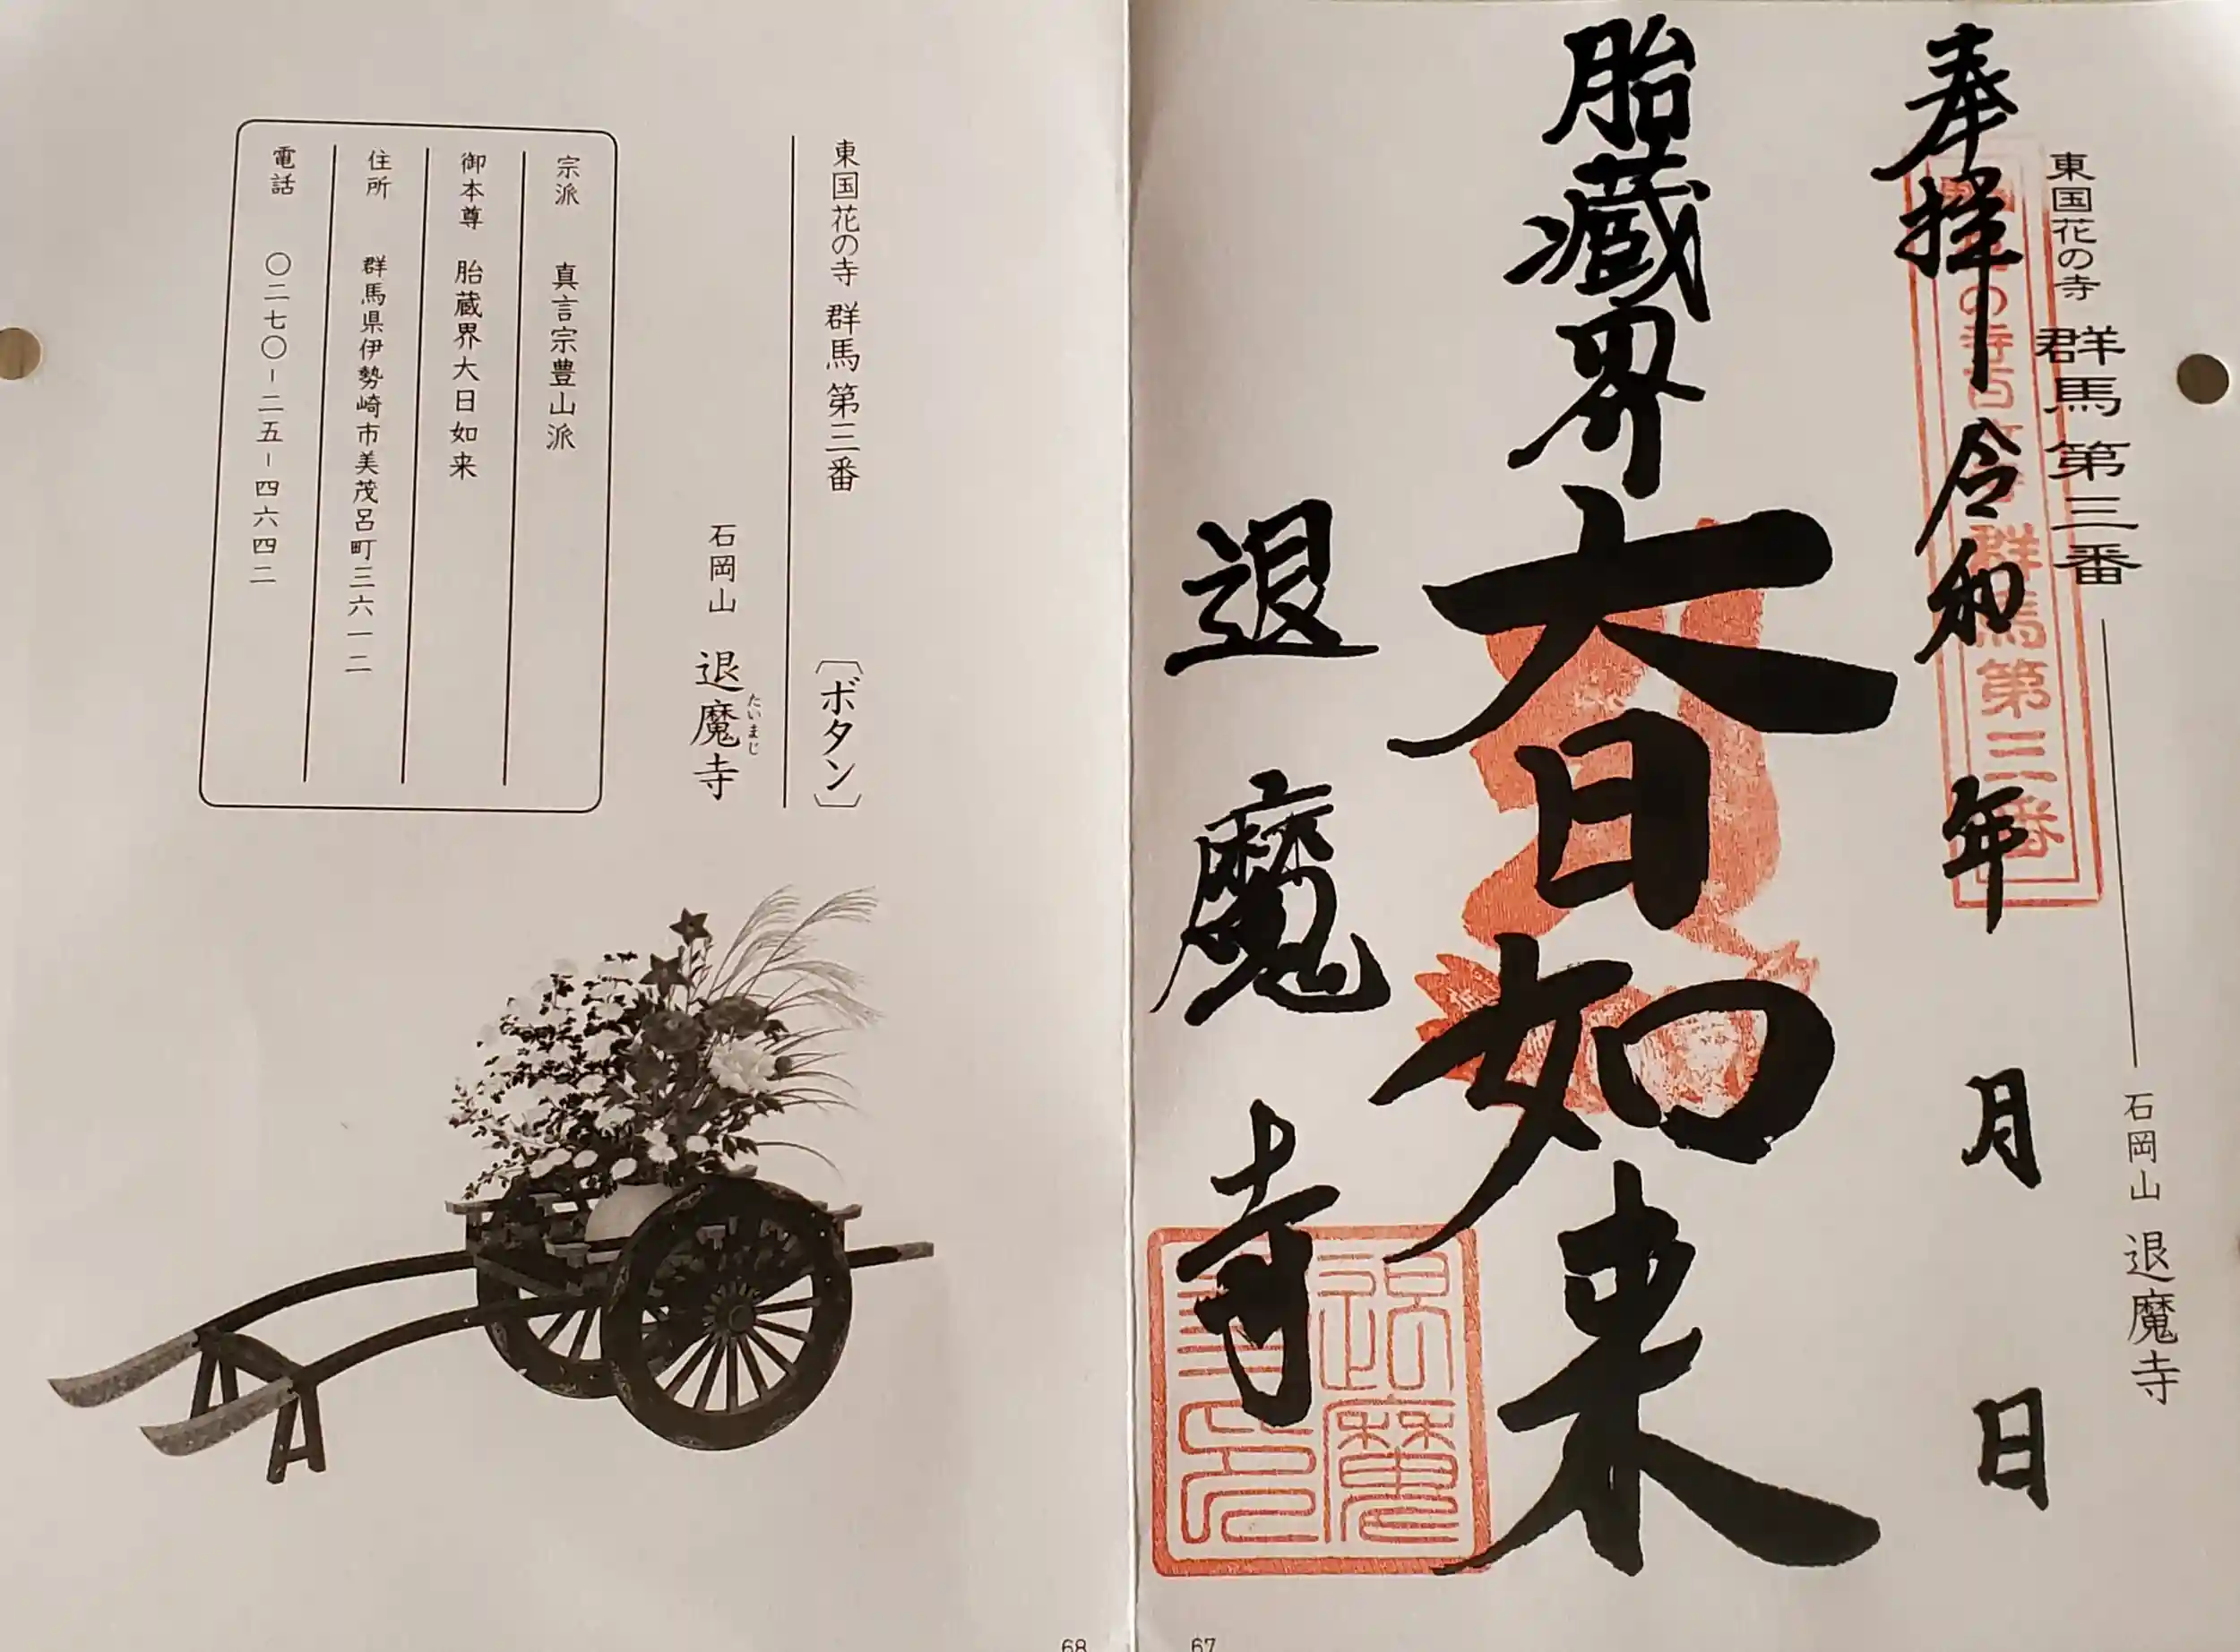 東国花の寺 群馬 第三番 石岡山 退魔寺
奉拝 令和 年 月 日
の寺百 群馬第三番
胎蔵界
大日如来
退魔寺
退魔
67
東国花の寺 群馬 第三番 〔ボタン〕
石岡山 退魔寺
たいまじ
宗派 真言宗豊山派
御本尊 胎蔵界大日如来
住所 群馬県伊勢崎市美茂呂町三六一二
電話 〇二七〇-二五-四六四二
68